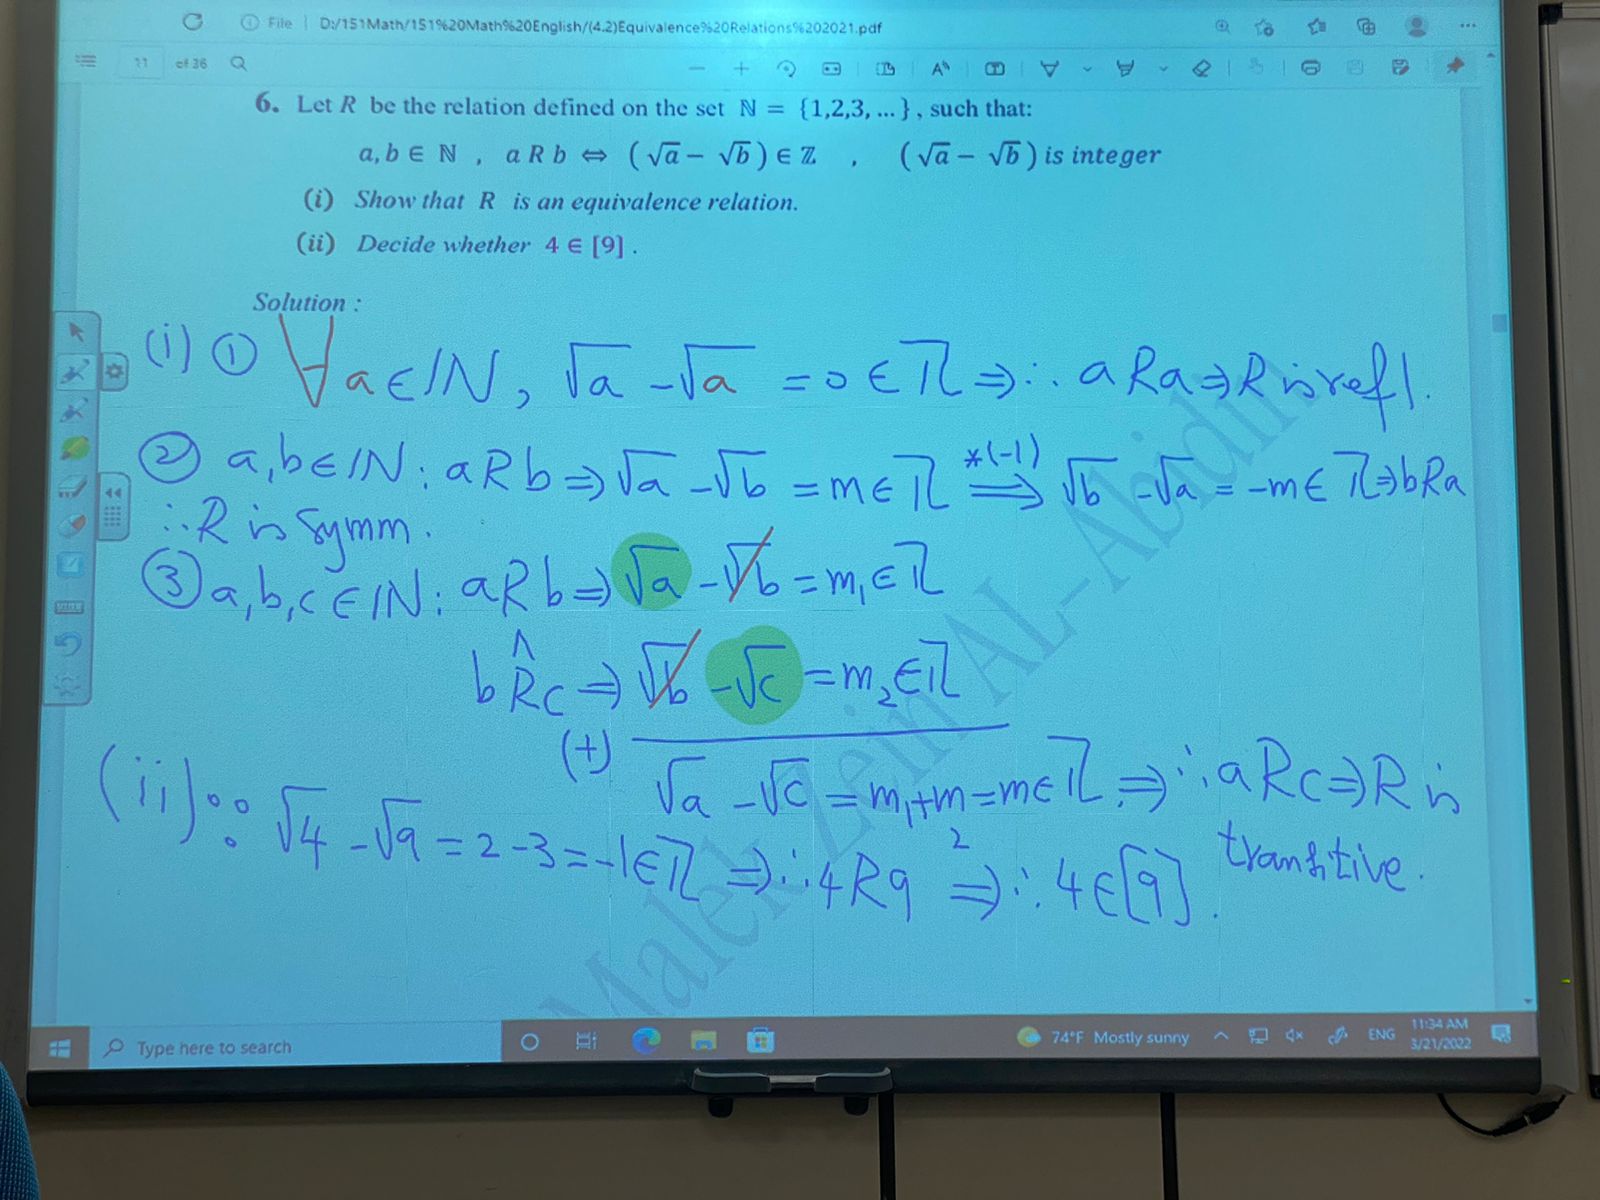 File | D:/151Math/151%20Math%20English/(4.2)Equivalence%20Relations%202021.pdf
11 of 36
6. Let R be the relation defined on the set ℕ = {1,2,3, ... } , such that:
a, b ∈ ℕ , a R b ⇔ (√a − √b) ∈ ℤ , (√a − √b) is integer
(i) Show that R is an equivalence relation.
(ii) Decide whether 4 ∈ [9] .
Solution :
(i) ① ∀ a ∈ ℕ, √a − √a = 0 ∈ ℤ ⇒ ∴ a R a ⇒ R is refl.
② a, b ∈ ℕ : a R b ⇒ √a − √b = m ∈ ℤ *(-1) ⇒ √b − √a = −m ∈ ℤ ⇒ b R a
∴ R is symm.
③ a, b, c ∈ ℕ : a R b ⇒ √a − √b = m₁ ∈ ℤ
∧
b R c ⇒ √b − √c = m₂ ∈ ℤ
(+)
√a − √c = m₁ + m₂ = m ∈ ℤ ⇒ ∴ a R c ⇒ R is
transitive.
(ii) ∵ √4 − √9 = 2 − 3 = −1 ∈ ℤ ⇒ ∴ 4 R 9 ⇒ ∴ 4 ∈ [9].
Malek Zein AL-Abidin
Type here to search
74°F Mostly sunny
ENG
11:34 AM
3/21/2022